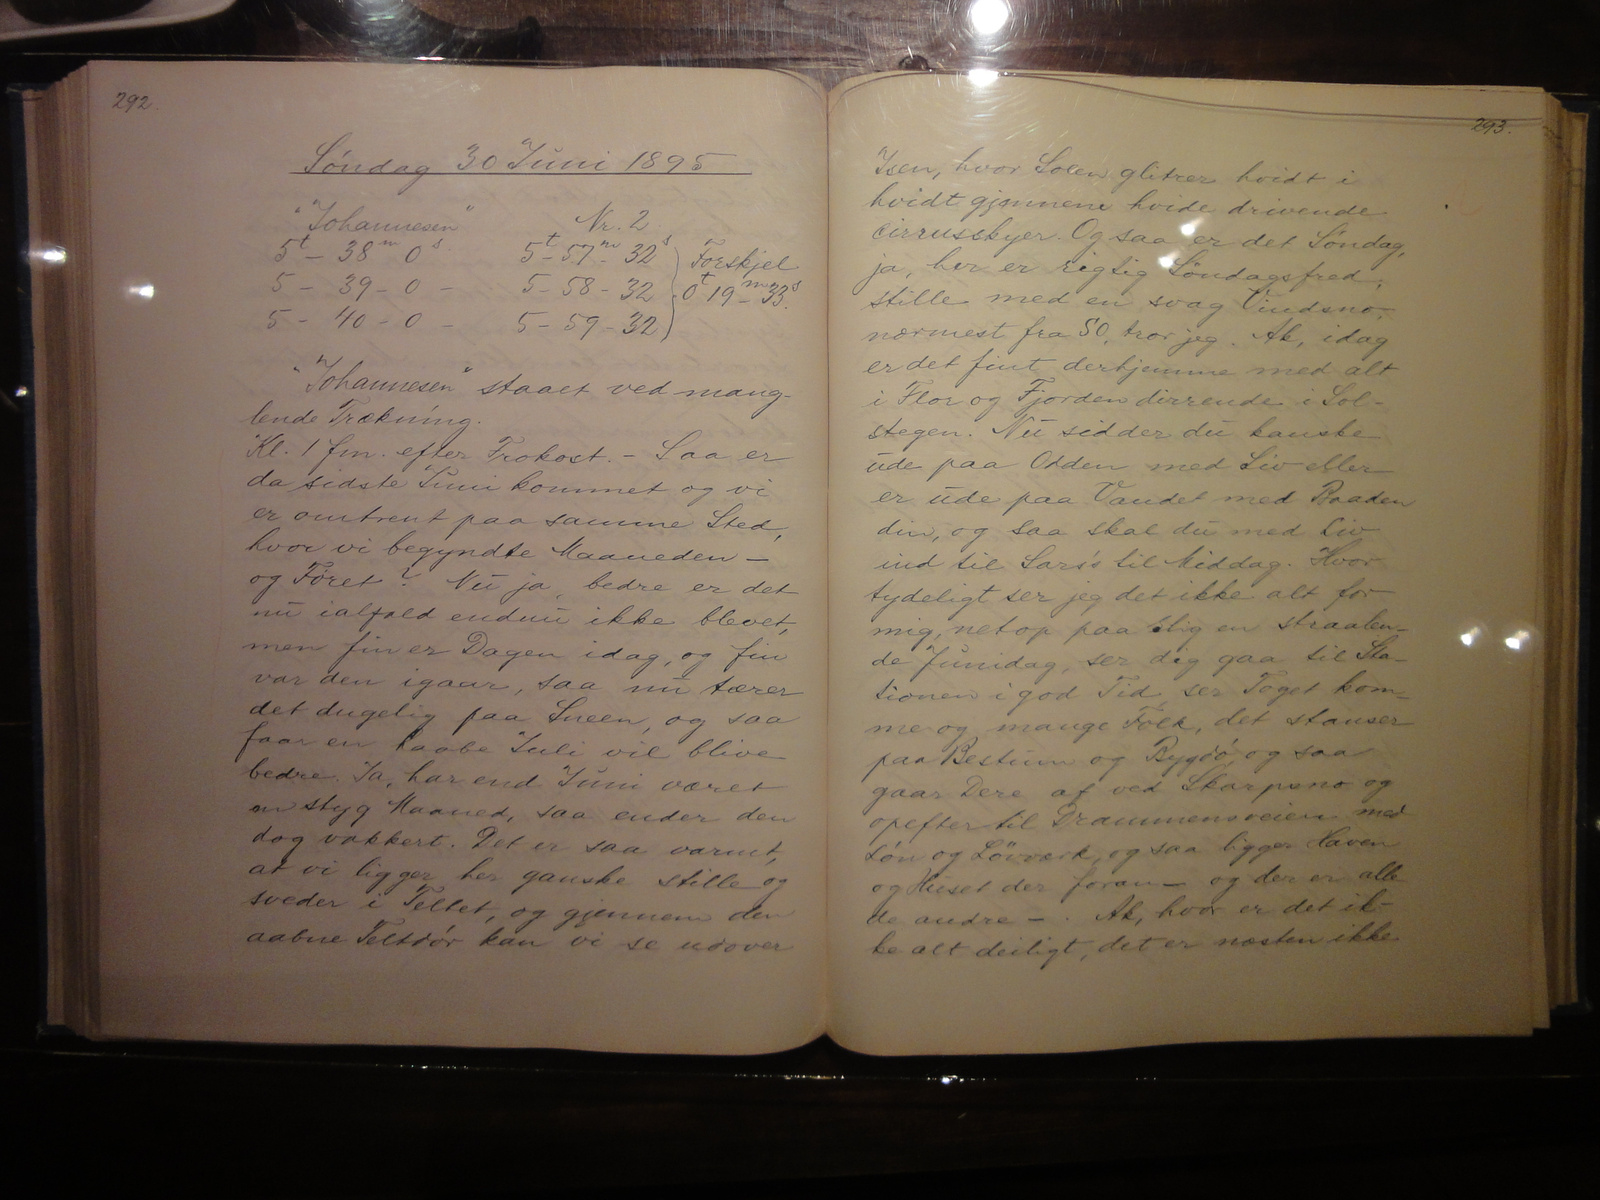 292.
Söndag 30 Juni 1895
"Johannesen" Nr. 2
5t - 38m 0s. 5t - 57m - 32s Forskjel
5 - 39 - 0 - 5 - 58 - 32 0t 19m - 33s.
5 - 40 - 0 - 5 - 59 - 32
"Johannesen" staaet ved mang-
lende Trækning.
Kl. 1 fm. efter Frokost. - Saa er
da sidste Juni kommet og vi
er omtrent paa samme Sted,
hvor vi begyndte Maaneden -
og Føret? Nu ja, bedre er det
nu ialfald endnu ikke blevet,
men fin er Dagen idag, og fin
var den igaar, saa nu tærer
det dugelig paa Sneen, og saa
faar en haabe Juli vil blive
bedre. Ja, har end Juni været
en styg Maaned, saa ender den
dog vakkert. Det er saa varmt,
at vi ligger her ganske stille og
sveder i Teltet, og gjennem den
aabne Teltdör kan vi se udover
293.
Isen, hvor Solen glitrer hvidt i
hvidt gjennem hvide drivende
cirrusskyer. Og saa er det Söndag,
ja, her er rigtig Söndagsfred,
stille med en svag Vindsno,
nærmest fra SO, tror jeg. Ak, idag
er det fint derhjemme med alt
i Flor og Fjorden dirrende i Sol-
stegen. Nu sidder du kanske
ude paa Odden med Liv eller
er ude paa Vandet med Baaden
din, og saa skal du med Liv
ind til Sars's til Middag. Hvor
tydeligt ser jeg det ikke alt for
mig, netop paa slig en straalen-
de Junidag, ser dig gaa til Sta-
tionen i god Tid, ser Toget kom-
me og mange Folk, det stanser
paa Bestum og Bygdö, og saa
gaar Dere af ved Skarpsno og
opefter til Drammensveien med
Lön og Lövværk, og saa ligger Haven
og Huset der foran - og der er alle
de andre - . Ak, hvor er det ik-
ke alt deiligt, det er næsten ikke